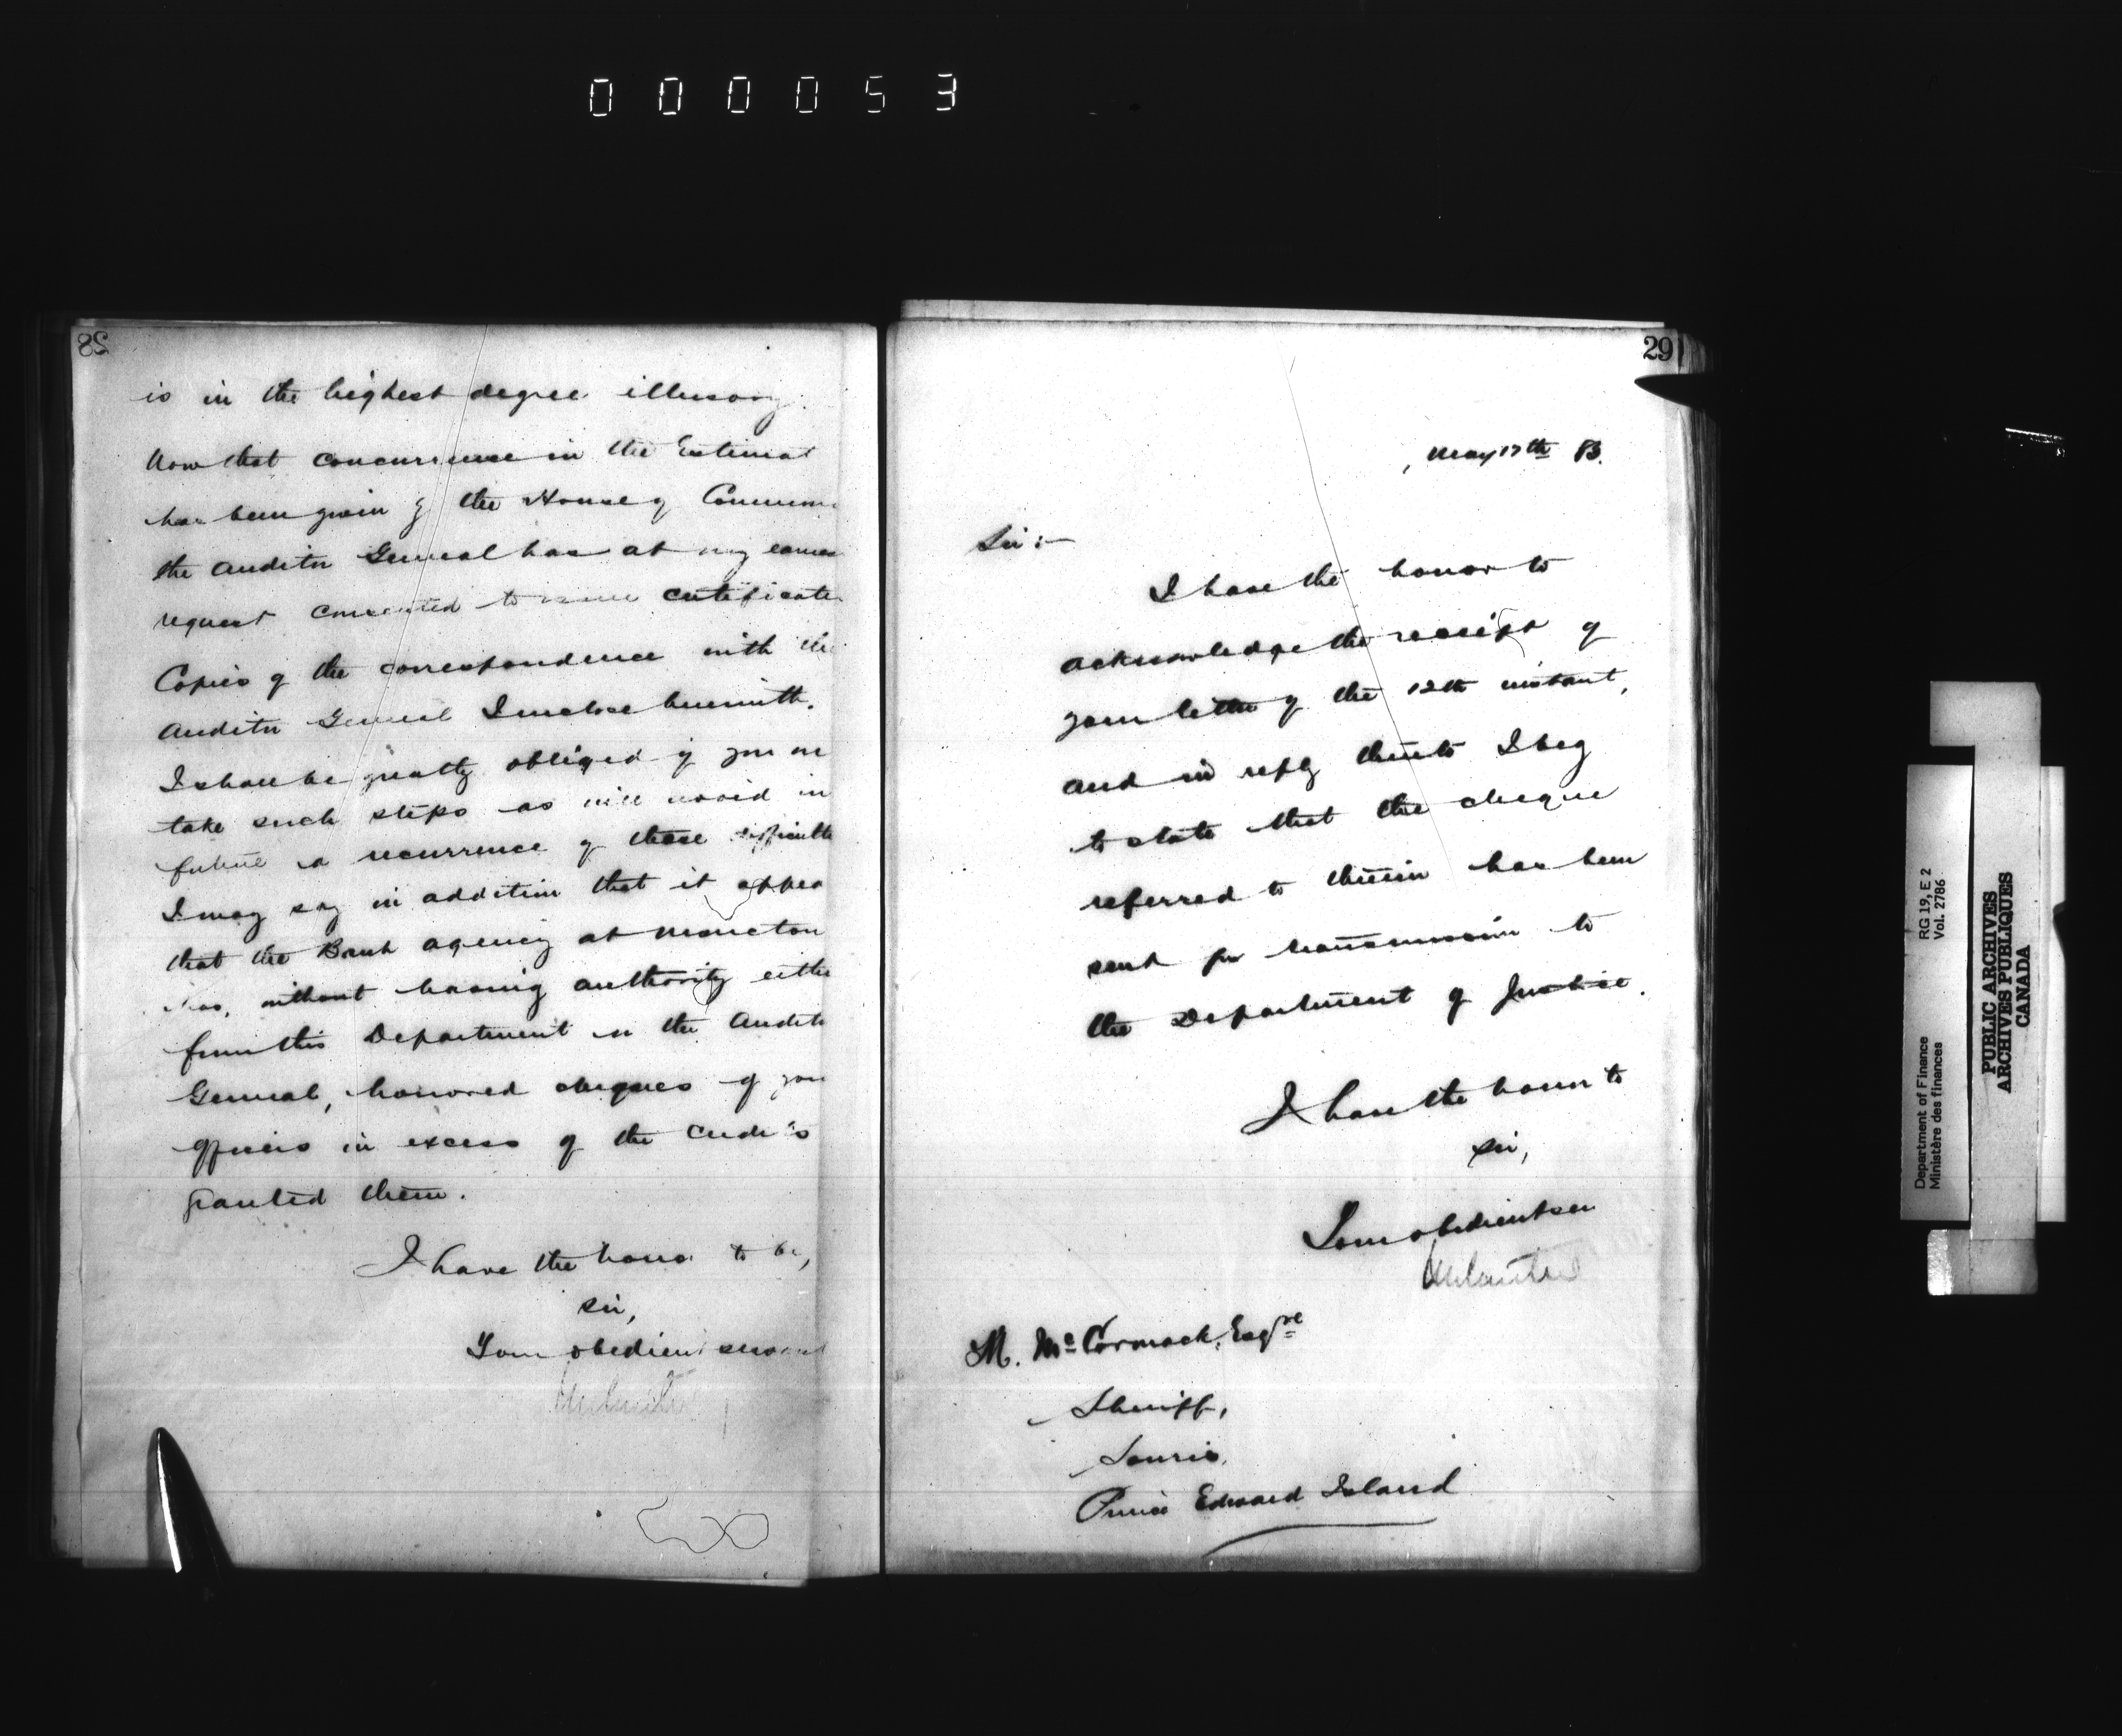 000053
28
is in the highest degree illusory.
Now that concurrence in the Estimat
has been given by the House of Common
the Auditor General has at my earnes
request consented to issue certificate
Copies of the correspondence with the
Auditor General I enclose herewith.
I shall be greatly obliged if you
take such steps as will avoid in
future a recurrence of these difficulti
I may say in addition that it appea
that the Bank agency at Moncton
has, without having authority eithe
from this Department or the Audito
General, honored cheques of you
Officers in excess of the Credits
granted them.
I have the honor to be,
Sir,
Your obedient servant
29
May 17th 83.
Sir:-
I have the honor to
acknowledge the receipt of
your letter of the 12th instant,
and in reply thereto I beg
to state that the cheque
referred to therein has been
sent for transmission to
the Department of Justice.
I have the honor to
Sir,
Your obedient ser
M. McCormack, Esqre
Sheriff,
Souris,
Prince Edward Island
Department of Finance
Ministère des finances
RG 19, E 2
Vol. 2786
PUBLIC ARCHIVES
ARCHIVES PUBLIQUES
CANADA